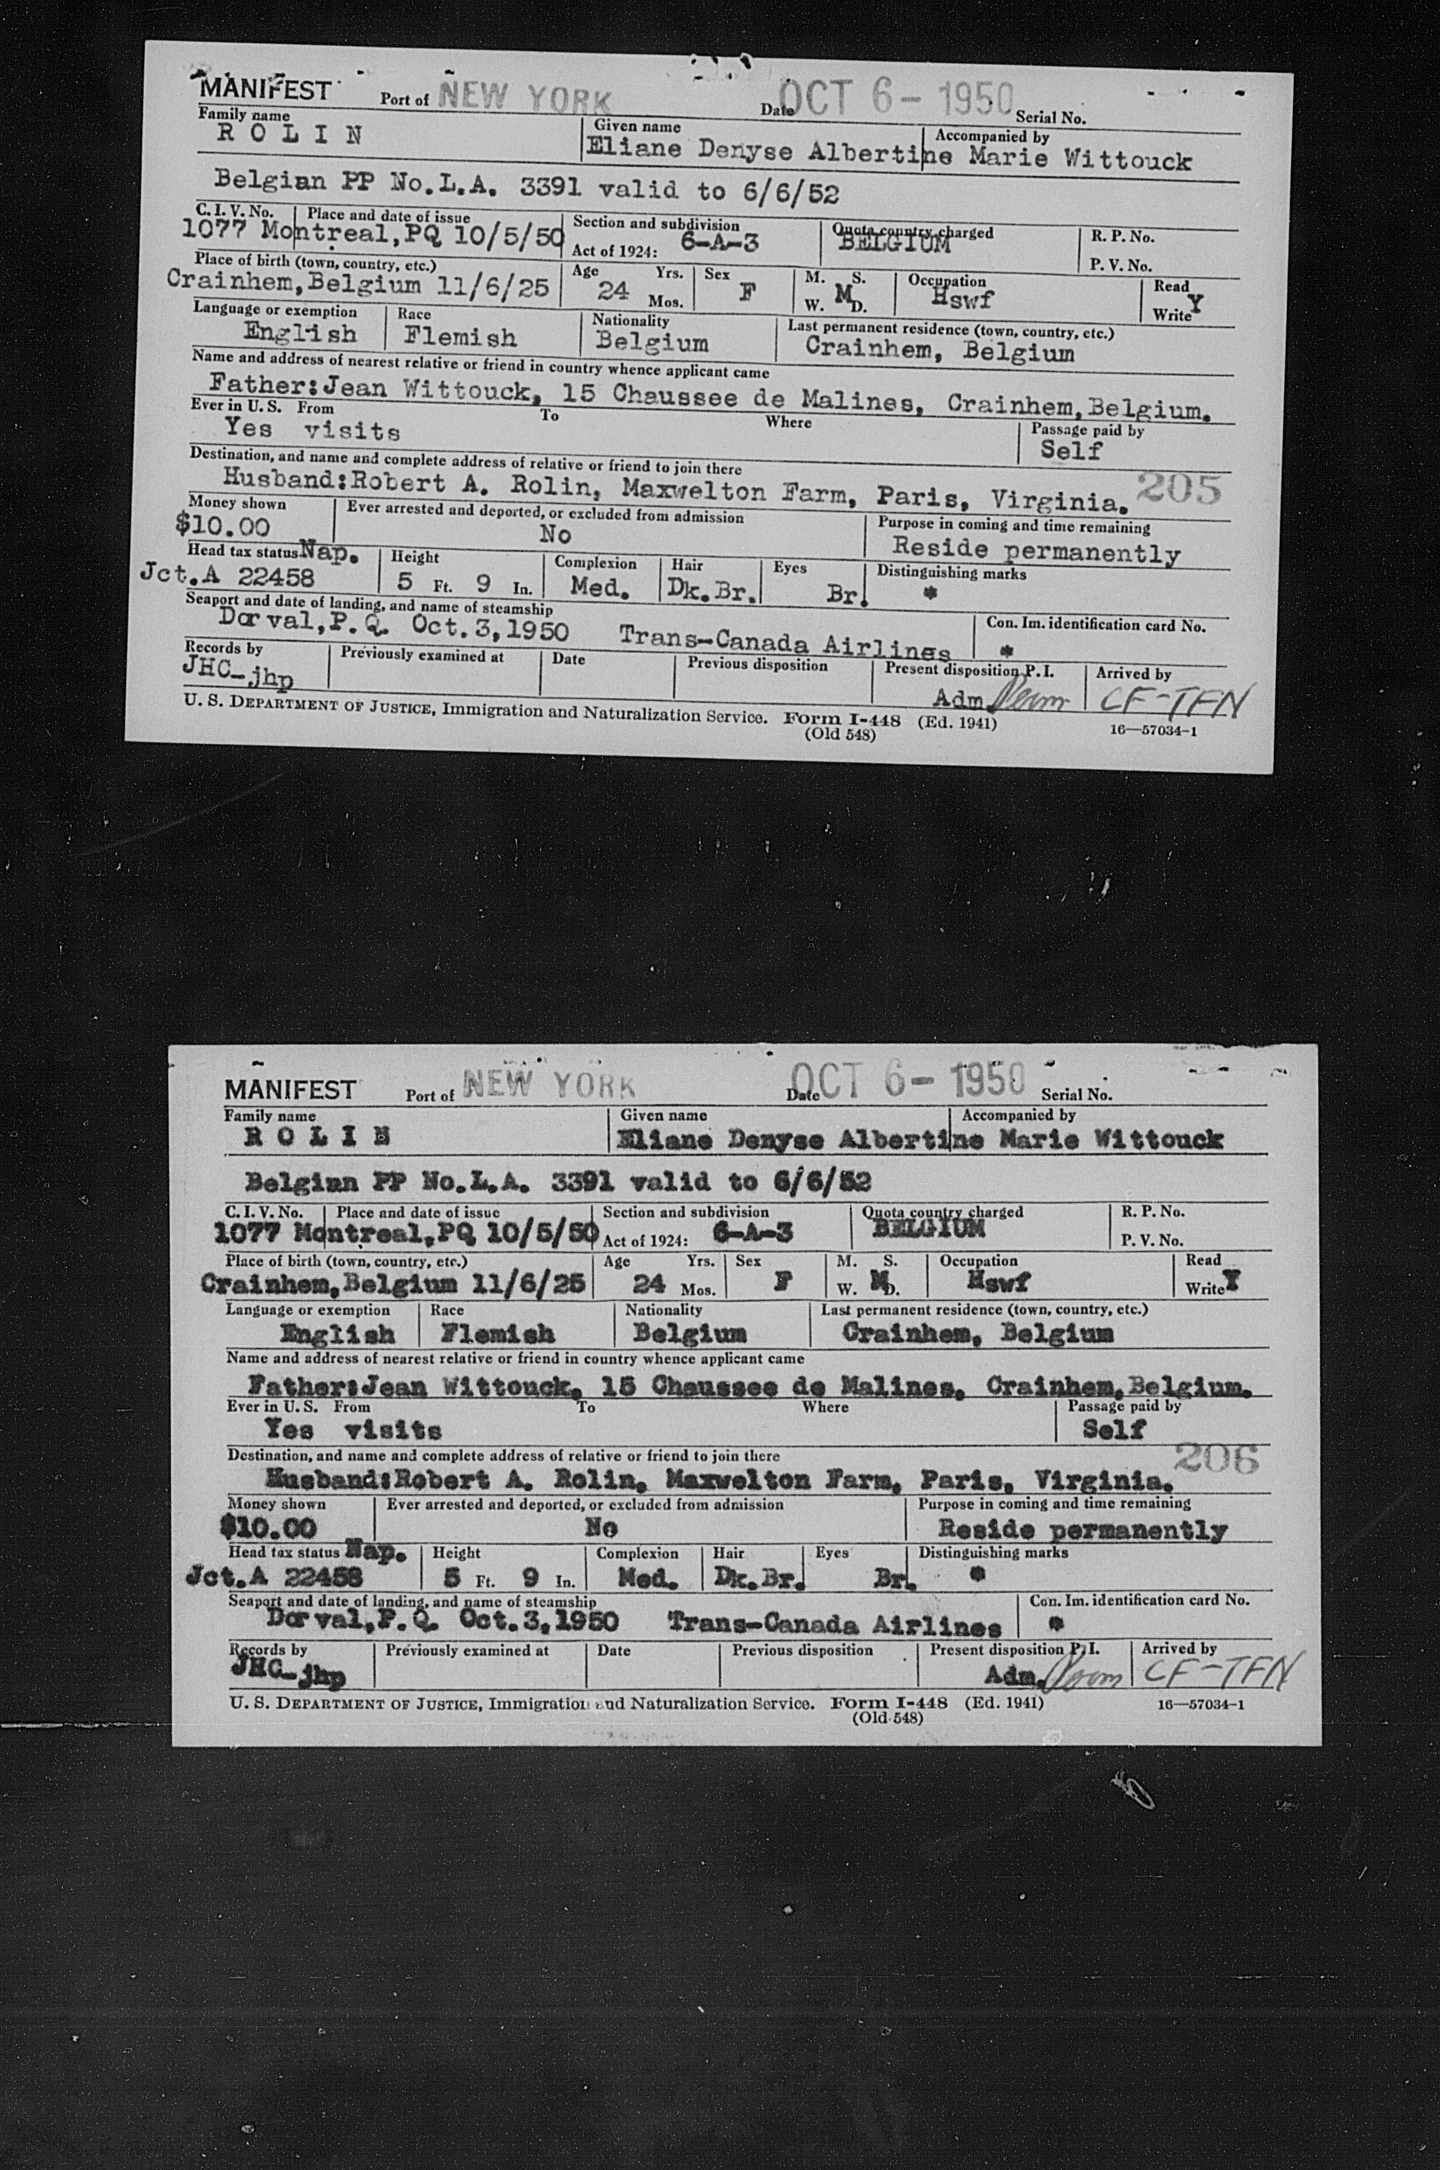 MANIFEST Port of NEW YORK Date OCT 6 - 1950 Serial No.
Family name Given name Accompanied by
R O L I N Eliane Denyse Albertine Marie Wittouck
Belgian PP No.L.A. 3391 valid to 6/6/52
C. I. V. No. Place and date of issue Section and subdivision Quota country charged R. P. No.
1077 Montreal,PQ 10/5/50 Act of 1924: 6-A-3 BELGIUM P. V. No.
Place of birth (town, country, etc.) Age Yrs. Sex M. S. Occupation Read
Crainhem,Belgium 11/6/25 24 Mos. F W. M D. Hswf Write Y
Language or exemption Race Nationality Last permanent residence (town, country, etc.)
English Flemish Belgium Crainhem, Belgium
Name and address of nearest relative or friend in country whence applicant came
Father:Jean Wittouck, 15 Chaussee de Malines, Crainhem,Belgium.
Ever in U. S. From To Where Passage paid by
Yes visits Self
Destination, and name and complete address of relative or friend to join there
Husband:Robert A. Rolin, Maxwelton Farm, Paris, Virginia. 205
Money shown Ever arrested and deported, or excluded from admission Purpose in coming and time remaining
$10.00 No Reside permanently
Head tax status Nap. Height Complexion Hair Eyes Distinguishing marks
Jct.A 22458 5 Ft. 9 In. Med. Dk.Br. Br. *
Seaport and date of landing, and name of steamship Con. Im. identification card No.
Dorval,P.Q. Oct.3,1950 Trans-Canada Airlines *
Records by Previously examined at Date Previous disposition Present disposition P. I. Arrived by
JHC-jhp Adm. CF-TFN
U. S. DEPARTMENT OF JUSTICE, Immigration and Naturalization Service. Form I-448 (Ed. 1941) 16—57034-1
(Old 548)
MANIFEST Port of NEW YORK Date OCT 6 - 1950 Serial No.
Family name Given name Accompanied by
R O L I N Eliane Denyse Albertine Marie Wittouck
Belgian PP No.L.A. 3391 valid to 6/6/52
C. I. V. No. Place and date of issue Section and subdivision Quota country charged R. P. No.
1077 Montreal,PQ 10/5/50 Act of 1924: 6-A-3 BELGIUM P. V. No.
Place of birth (town, country, etc.) Age Yrs. Sex M. S. Occupation Read
Crainhem,Belgium 11/6/25 24 Mos. F W. M D. Hswf Write Y
Language or exemption Race Nationality Last permanent residence (town, country, etc.)
English Flemish Belgium Crainhem, Belgium
Name and address of nearest relative or friend in country whence applicant came
Father:Jean Wittouck, 15 Chaussee de Malines, Crainhem,Belgium.
Ever in U. S. From To Where Passage paid by
Yes visits Self
Destination, and name and complete address of relative or friend to join there
Husband:Robert A. Rolin, Maxwelton Farm, Paris, Virginia. 206
Money shown Ever arrested and deported, or excluded from admission Purpose in coming and time remaining
$10.00 No Reside permanently
Head tax status Nap. Height Complexion Hair Eyes Distinguishing marks
Jct.A 22458 5 Ft. 9 In. Med. Dk.Br. Br. *
Seaport and date of landing, and name of steamship Con. Im. identification card No.
Dorval,P.Q. Oct.3,1950 Trans-Canada Airlines *
Records by Previously examined at Date Previous disposition Present disposition P. I. Arrived by
JHC-jhp Adm. CF-TFN
U. S. DEPARTMENT OF JUSTICE, Immigration and Naturalization Service. Form I-448 (Ed. 1941) 16—57034-1
(Old 548)